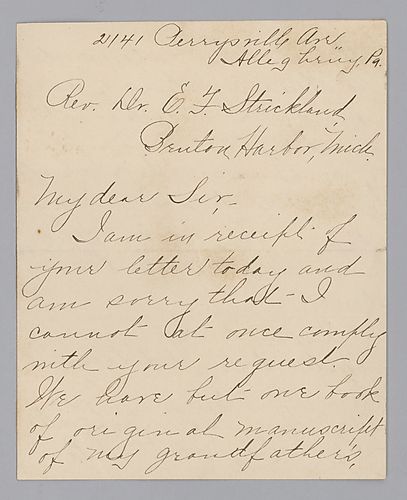 2141 Perrysville Av.
Allegheny, Pa.
Rev. Dr. E. F. Strickland,
Benton Harbor, Mich.
My dear Sir,
I am in receipt of
your letter today and
am sorry that I
cannot at once comply
with your request.
We have but one book
of original manuscript
of my grandfather's,